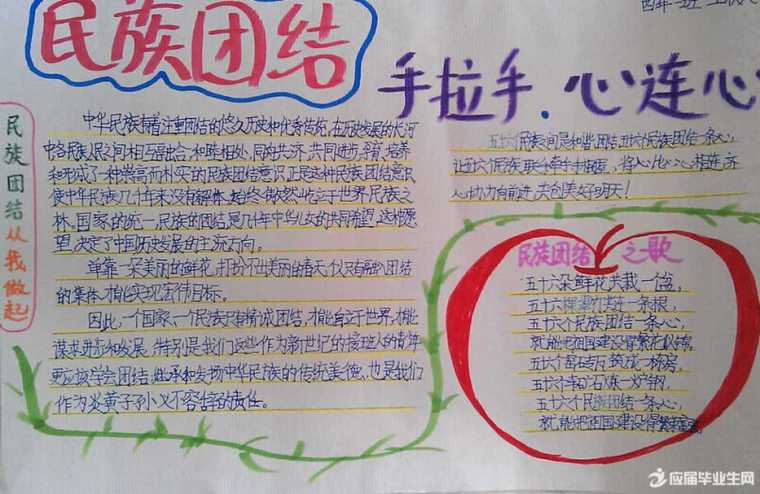 民族团结
四年一班
手拉手.心连心
民族团结从我做起
中华民族有着注重团结的悠久历史和优秀传统,在历史发展的长河
中各民族人民之间相互融合,和睦相处,同舟共济,共同进步,孕育、培养
和形成了一种崇高而朴实的民族团结意识正是这种民族团结意识
使中华民族几千年来没有解体,始终傲然屹立于世界民族之
林。国家的统一,民族的团结是几千年中华儿女的共同希望,这种愿
望,决定了中国历史发展的主流方向。
单靠一朵美丽的鲜花,打扮不出美丽的春天,仅只有融入团结
的集体,才能实现宏伟目标。
因此,一个国家、一个民族只有精诚团结,才能自立于世界,才能
谋求进步和发展,特别是我们这些作为新世纪的接班人的青年
更应该学会团结,继承和发扬中华民族的传统美德,也是我们
作为炎黄子孙义不容辞的责任。
五十六民族之间是和谐团结,五十六民族团结一条心,
让五十六个民族联合牵手在祖国,将心比心心相连,齐
心协力向前进,共创美好明天!
民族团结之歌
五十六朵鲜花共栽一个盆,
五十六棵 共连一条根,
五十六个民族团结一条心,
就能把祖国建设得繁花似锦。
五十六 砖 筑成一栋房,
五十六 矿石炼一炉钢,
五十六个民族团结一条心,
就能把祖国建设得繁荣富强
应届毕业生网